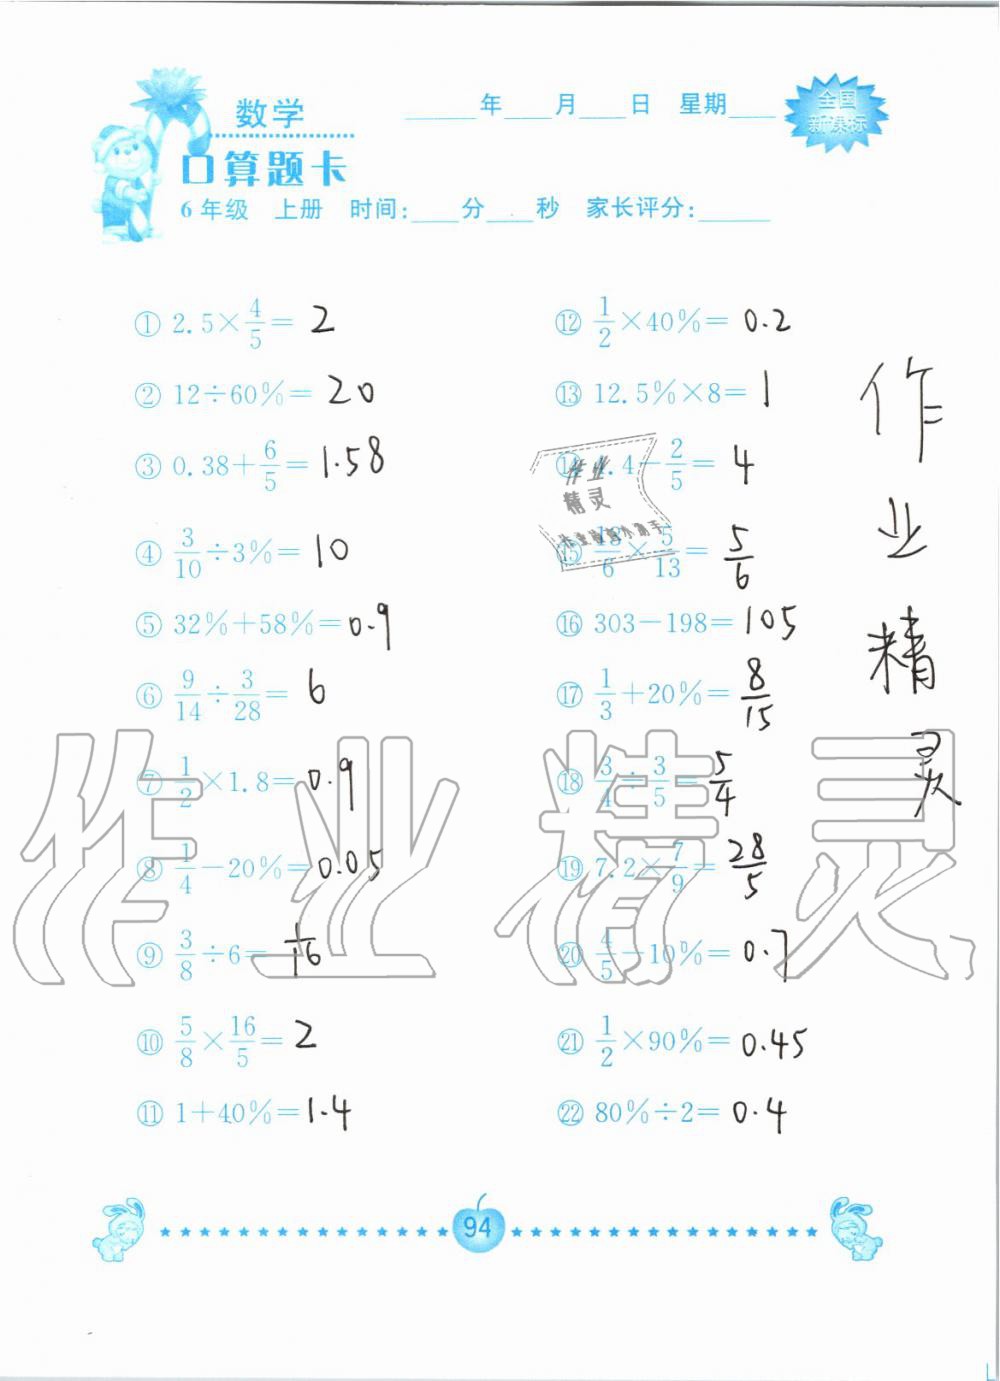 数学
____年____月____日 星期____
全国
新课标
口算题卡
6年级 上册 时间:____分____秒 家长评分:____
① 2.5×4/5= 2
② 12÷60%= 20
③ 0.38+6/5= 1.58
④ 3/10÷3%= 10
⑤ 32%+58%= 0.9
⑥ 9/14÷3/28= 6
⑦ 1/2×1.8= 0.9
⑧ 1/4-20%= 0.05
⑨ 3/8÷6= 1/16
⑩ 5/8×16/5= 2
⑪ 1+40%= 1.4
⑫ 1/2×40%= 0.2
⑬ 12.5%×8= 1
⑭ .4-2/5= 4
⑮ 13/6×5/13= 5/6
⑯ 303-198= 105
⑰ 1/3+20%= 8/15
⑱ 3/4÷3/5= 5/4
⑲ 7.2×7/9= 28/5
⑳ 4/5-10%= 0.7
㉑ 1/2×90%= 0.45
㉒ 80%÷2= 0.4
作业精灵
作业
精灵
作业精灵
94